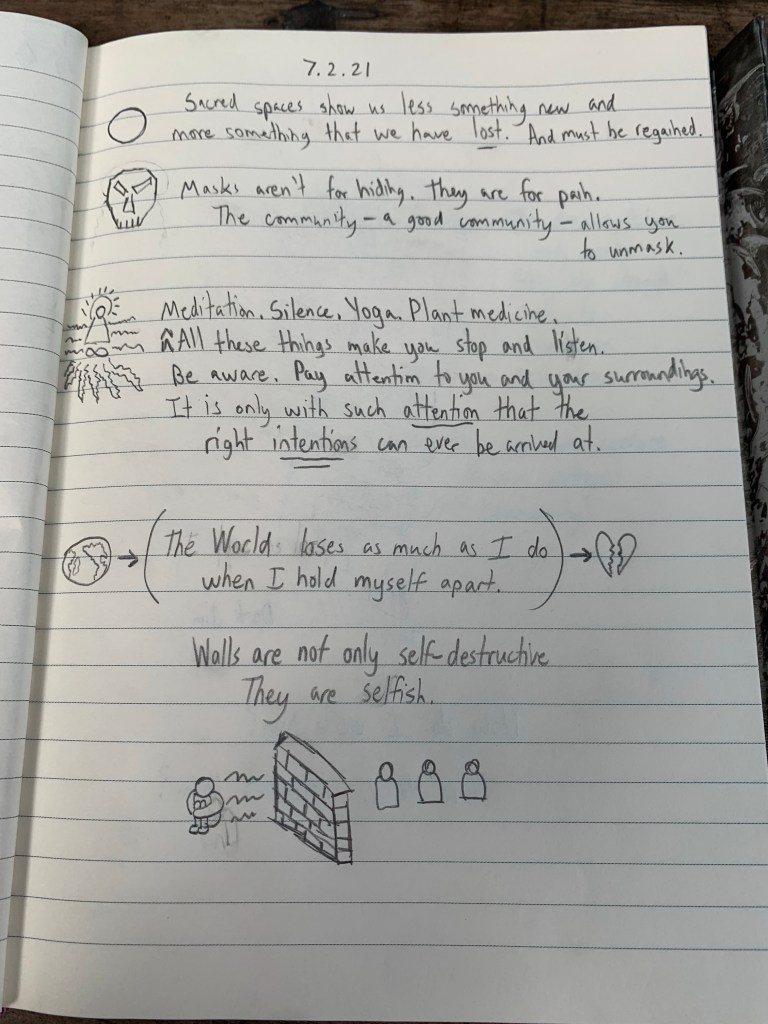 7.2.21
Sacred spaces show us less something new and
more something that we have lost. And must be regained.
Masks aren't for hiding. They are for pain.
The community – a good community – allows you
to unmask.
Meditation. Silence. Yoga. Plant medicine.
All these things make you stop and listen.
Be aware. Pay attention to you and your surroundings.
It is only with such attention that the
right intentions can ever be arrived at.
The World loses as much as I do
when I hold myself apart.
Walls are not only self-destructive
They are selfish.